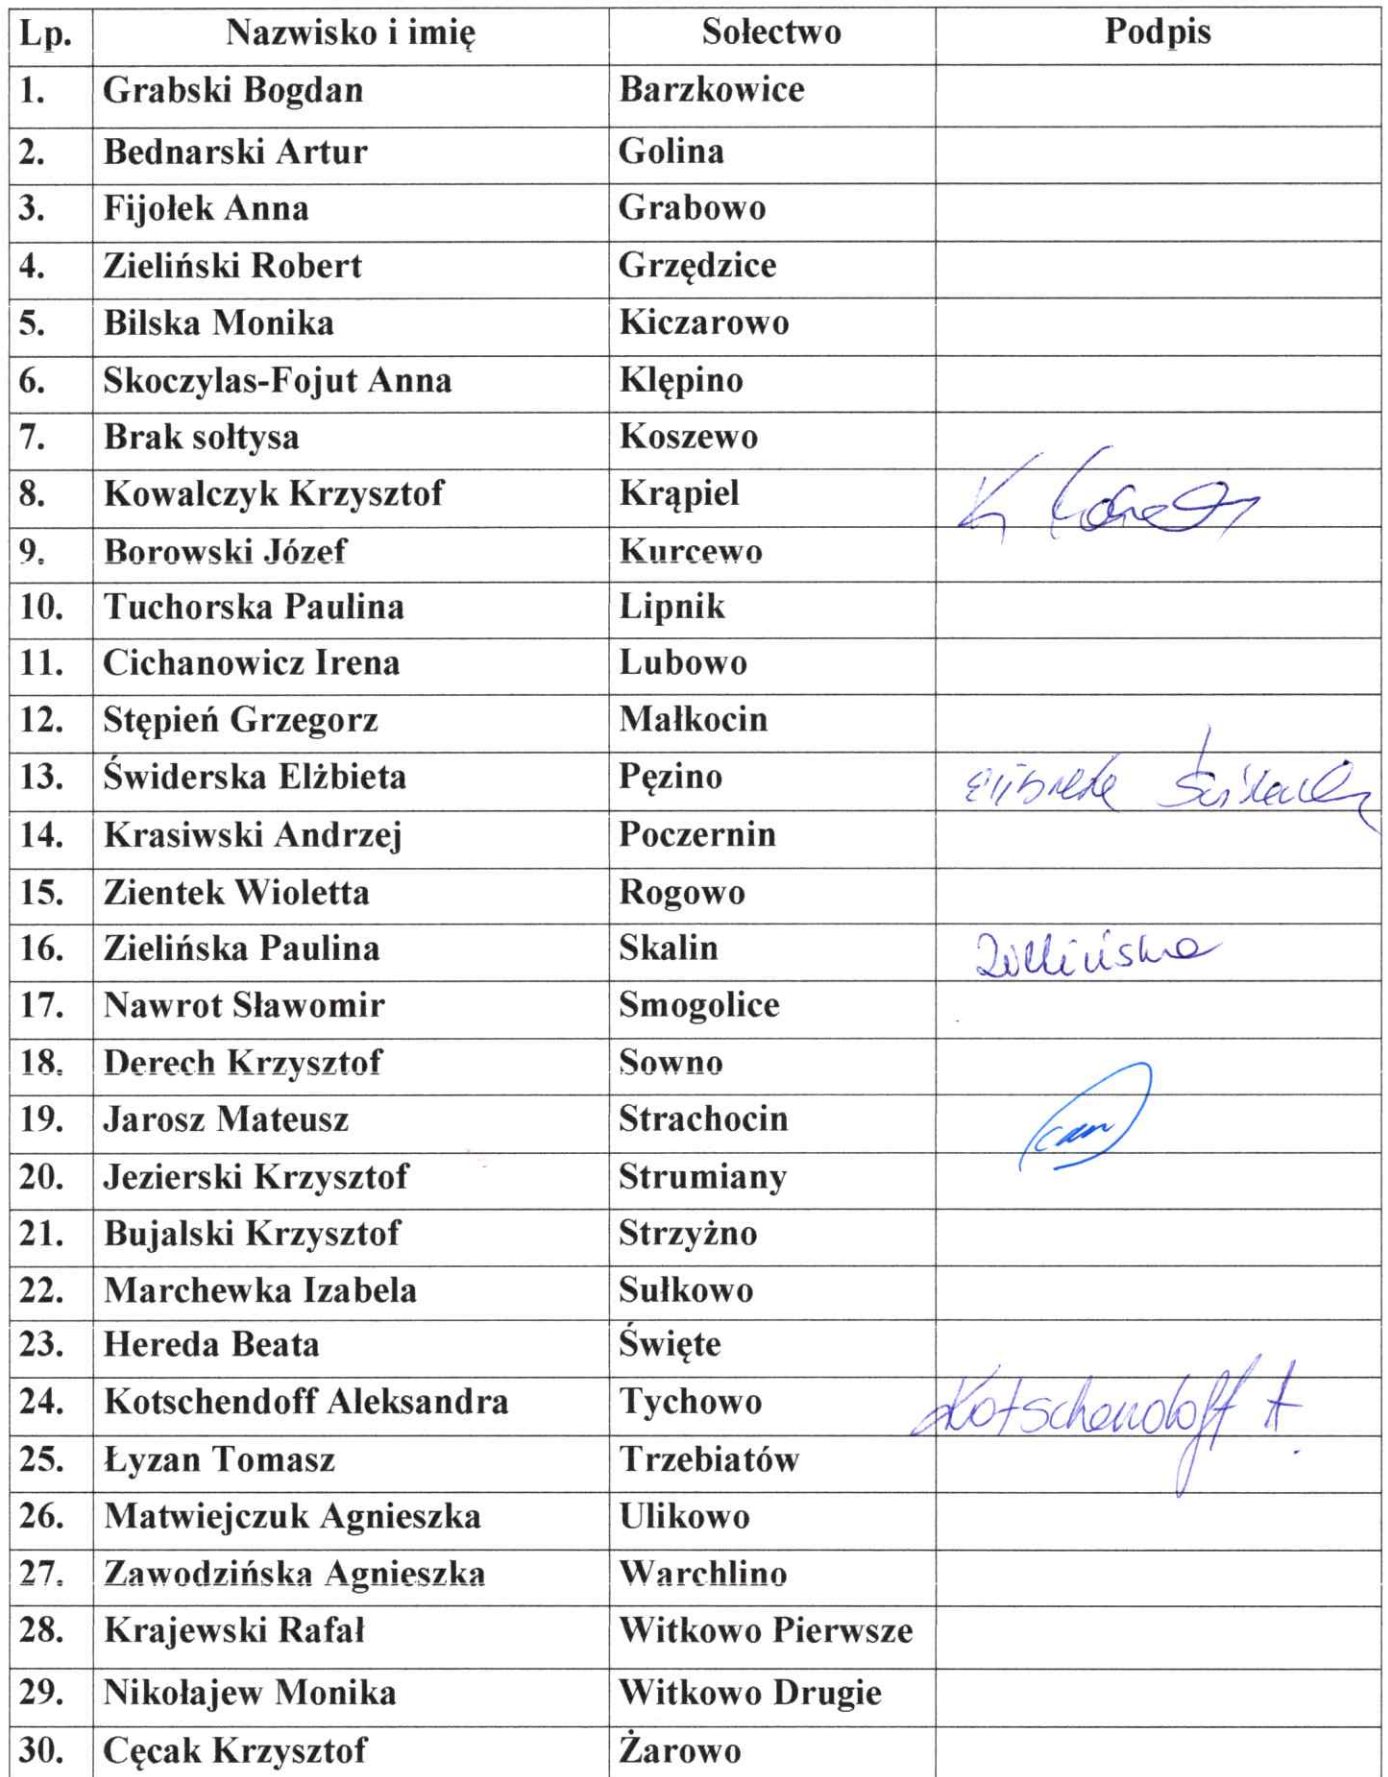 Lp. Nazwisko i imię Sołectwo Podpis
1. Grabski Bogdan Barzkowice
2. Bednarski Artur Golina
3. Fijołek Anna Grabowo
4. Zieliński Robert Grzędzice
5. Bilska Monika Kiczarowo
6. Skoczylas-Fojut Anna Klępino
7. Brak sołtysa Koszewo
8. Kowalczyk Krzysztof Krąpiel K
9. Borowski Józef Kurcewo
10. Tuchorska Paulina Lipnik
11. Cichanowicz Irena Lubowo
12. Stępień Grzegorz Małkocin
13. Świderska Elżbieta Pęzino
14. Krasiwski Andrzej Poczernin
15. Zientek Wioletta Rogowo
16. Zielińska Paulina Skalin Zielińska
17. Nawrot Sławomir Smogolice
18. Derech Krzysztof Sowno
19. Jarosz Mateusz Strachocin
20. Jezierski Krzysztof Strumiany
21. Bujalski Krzysztof Strzyżno
22. Marchewka Izabela Sułkowo
23. Hereda Beata Święte
24. Kotschendoff Aleksandra Tychowo Kotschendoff A.
25. Łyzan Tomasz Trzebiatów
26. Matwiejczuk Agnieszka Ulikowo
27. Zawodzińska Agnieszka Warchlino
28. Krajewski Rafał Witkowo Pierwsze
29. Nikołajew Monika Witkowo Drugie
30. Cęcak Krzysztof Żarowo